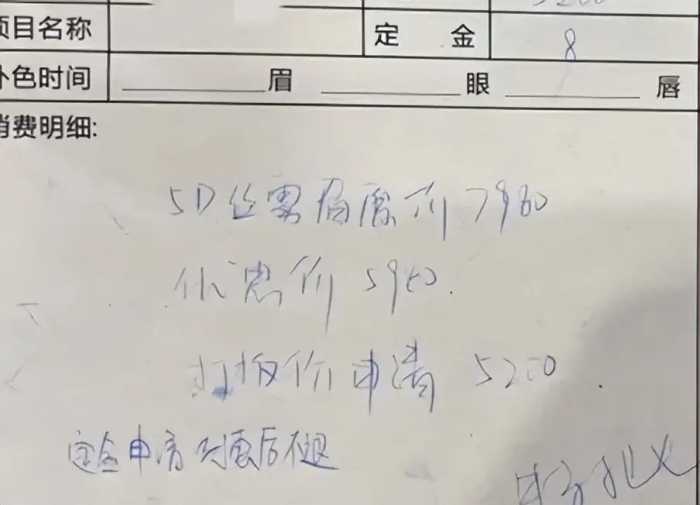 项目名称 定 金 8
补色时间 眉 眼 唇
消费明细:
5D丝雾眉原价7960
优惠价5960.
打板价申请 5200.
定金申请 后不退